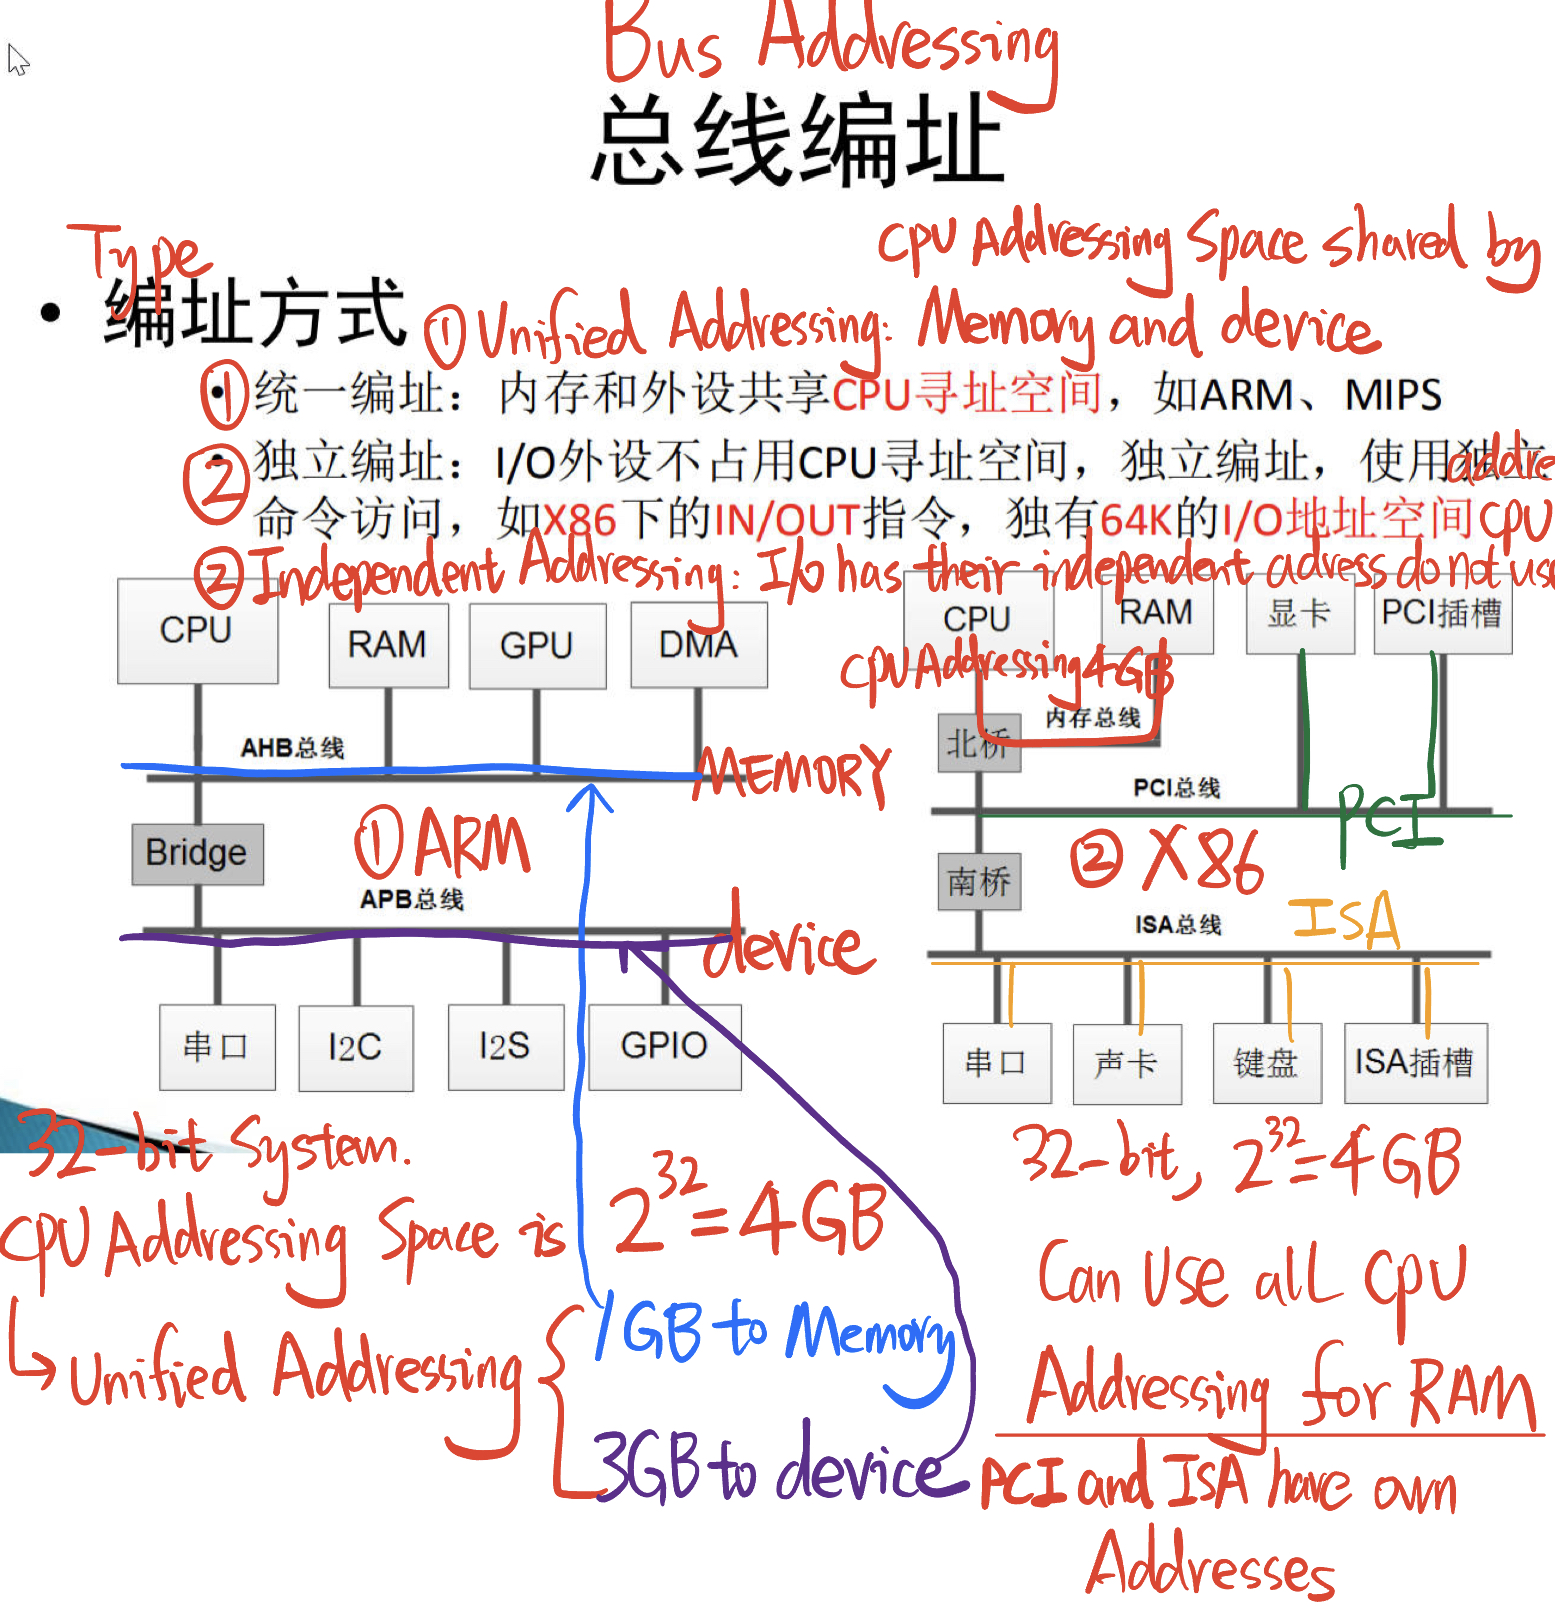 Bus Addressing
总线编址
Type
CPU Addressing Space shared by
• 编址方式
① Unified Addressing: Memory and device
① 统一编址：内存和外设共享CPU寻址空间，如ARM、MIPS
② 独立编址：I/O外设不占用CPU寻址空间，独立编址，使用独立
addre
命令访问，如X86下的IN/OUT指令，独有64K的I/O地址空间
CPU
② Independent Addressing: I/O has their independent adress do not use
CPU
RAM
GPU
DMA
AHB总线
MEMORY
Bridge
① ARM
APB总线
device
串口
I2C
I2S
GPIO
CPU
RAM
显卡
PCI插槽
CPU Addressing 4GB
北桥
内存总线
PCI总线
PCI
南桥
② X86
ISA总线
ISA
串口
声卡
键盘
ISA插槽
32-bit System.
CPU Addressing Space is 2^32=4GB
Unified Addressing
1GB to Memory
3GB to device
32-bit, 2^32=4GB
Can Use all CPU
Addressing for RAM
PCI and ISA have own
Addresses